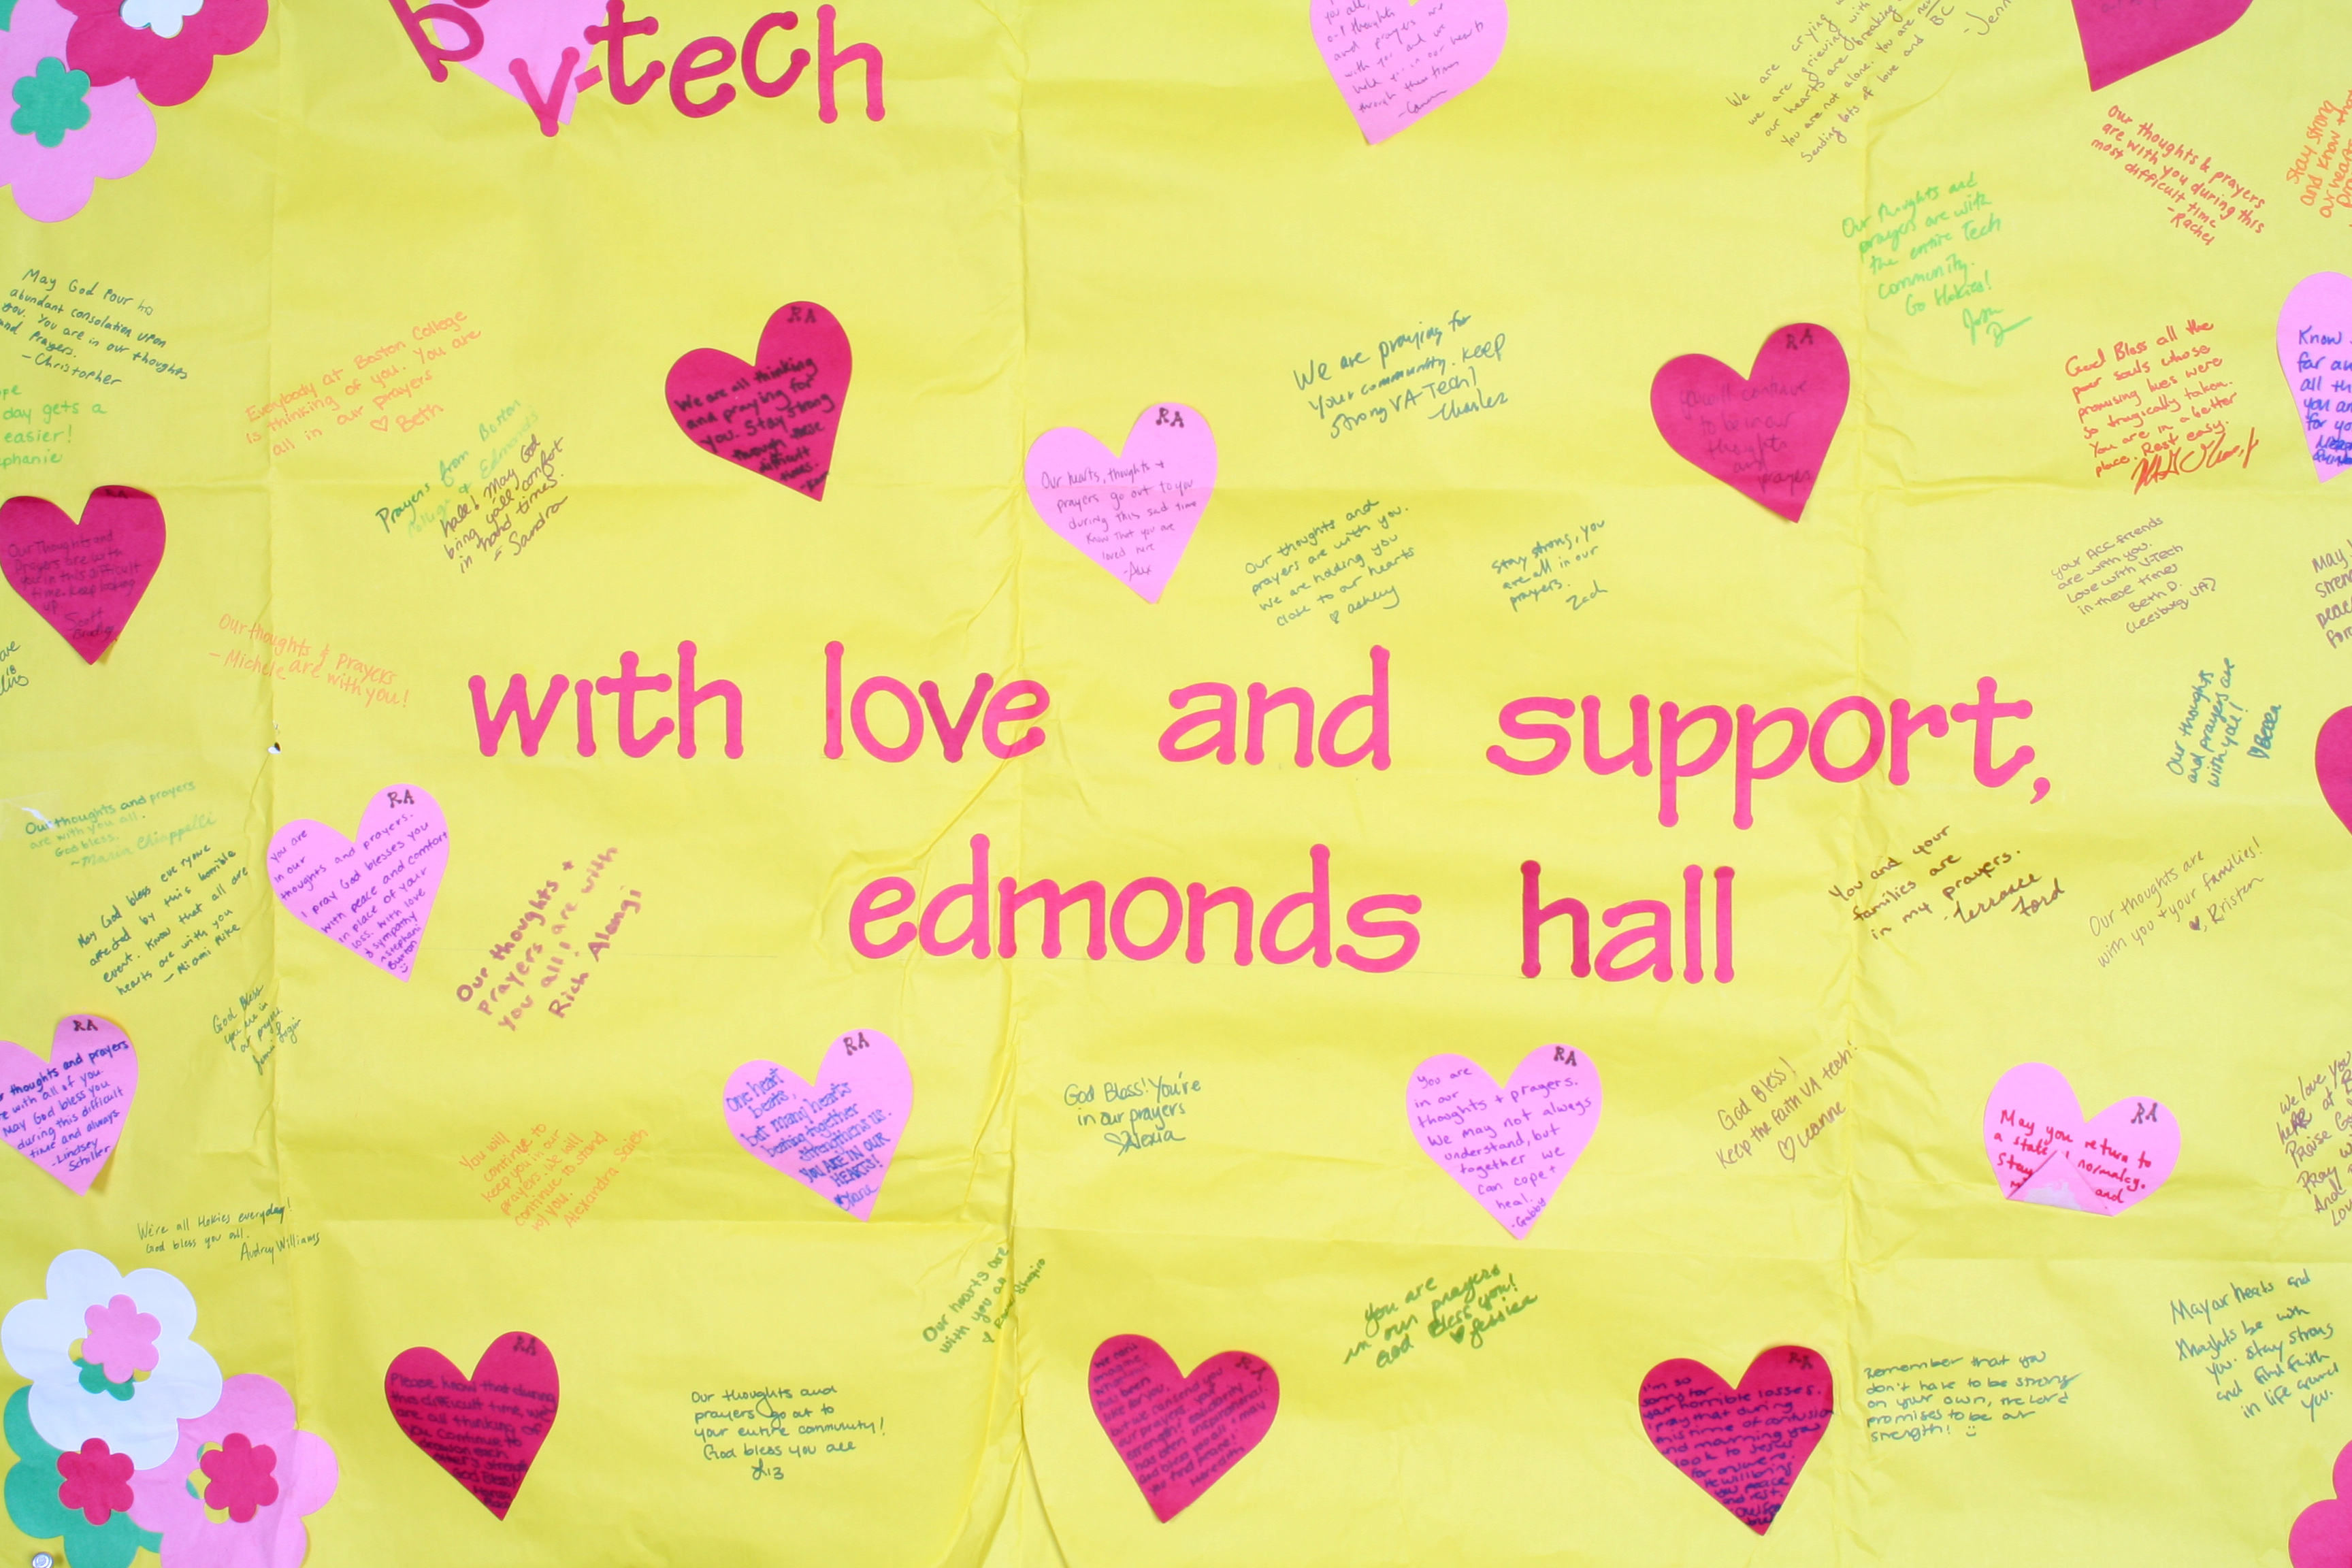 v-tech
you all,
and prayers are
with you and we
hold you in our hearts
through these times
We are crying
we are grieving with
our hearts are breaking
You are not alone. You are
Sending lots of love and
BC
-Jenn
Our thoughts & prayers
are with you during this
most difficult time
-Rachel
Stay strong
and know that
our hearts
Our thoughts and
prayers are with
the entire Tech
community.
Go Hokies!
Josh
May God Pour his
abundant consolation upon
you. You are in our thoughts
and Prayers.
-Christopher
day gets a
easier!
Everybody at Boston College
is thinking of you. You are
all in our prayers
♡ Beth
Prayers from Boston
College & Edmonds
hall! May God
bring yall comfort
in hard times.
- Sandra
RA
We are all thinking
and praying for
you. Stay strong
through these
difficult
times.
RA
Our hearts, thoughts +
prayers go out to you
during this sad time
Know That you are
loved here
-Alex
We are praying for
your community. Keep
strong VA-Tech!
-Charles
RA
you will continue
to be in our
thoughts
and
prayers
God Bless all the
poor souls whose
promising lives were
so tragically taken.
You are in a better
place. Rest easy.
Know
far
all
you
for
RA
Our Thoughts and
Prayers are with
you in this difficult
time. Keep looking
up
Scott
Our thoughts and
prayers are with you.
We are holding you
close to our hearts
♡ Ashley
Stay strong, you
are all in our
prayers.
Zach
your ACC friends
are with you.
Love with V-Tech
in these times
Beth D.
(Leesburg VA)
May
Our thoughts & prayers
- Michele are with you!
with love and support,
Our thoughts
and prayers are
with you!
♡Becca
Our thoughts and prayers
are with you all.
God bless.
~Maria Chiappelli
May God bless everyone
affected by this horrible
event. Know that all are
hearts are with you
- Miami Mike
RA
You are
in our
thoughts and prayers.
I pray God blesses you
with peace and comfort
in place of your
loss. With love
& sympathy
Stephani
Burton
Our thoughts +
prayers are with
you all!
Rich Alongi
edmonds hall
You and your
families are
in my prayers.
-Terrance
Ford
Our thoughts are
with you + your families!
♥, Kristen
God Bless
you are in
RA
thoughts and prayers
with all of you.
May God bless you
during this difficult
time and always
-Lindsey
Schiller
You will
continue to
keep you in our
prayers. We will
continue to stand
by you.
Alexandra Saieh
RA
One heart
beats,
but many hearts
beating together
strengthens us.
YOU ARE IN OUR
HEARTS!
God Bless! You're
in our prayers
♡Alexia
RA
You are
in our
thoughts + prayers.
We may not always
understand, but
together we
can cope +
heal.
-Gabby
God Bless!
Keep the faith VA tech!
♡ Leanne
RA
May you return to
a state normalcy.
Stay
and
We love you
at
Praise God
Pray
And
We're all Hokies everyday!
God bless you all.
Audrey Williams
Our hearts are
with you all
You are
in our prayers
God Bless you!
♥ Jessica
May our hearts and
thoughts be with
you. Stay strong
and find faith
in life around
you.
RA
Please know that during
this difficult time, we
are all thinking of
you. Continue to
draw on each
other's strength
God Bless!
Our thoughts and
prayers go out to
your entire community!
God bless you all
Liz
RA
We can't
imagine
what this
has been
like for you,
but we can send you
our prayers. Your
strength & solidarity
has been inspirational.
God bless you all & may
you find peace!
Meredith
RA
I'm so
sorry for
your horrible losses.
I pray that during
this time of confusion
and mourning you
look to Jesus
for answers.
He will bring
you peace
and rest.
Remember that you
don't have to be strong
on your own, the Lord
promises to be our
strength! :)